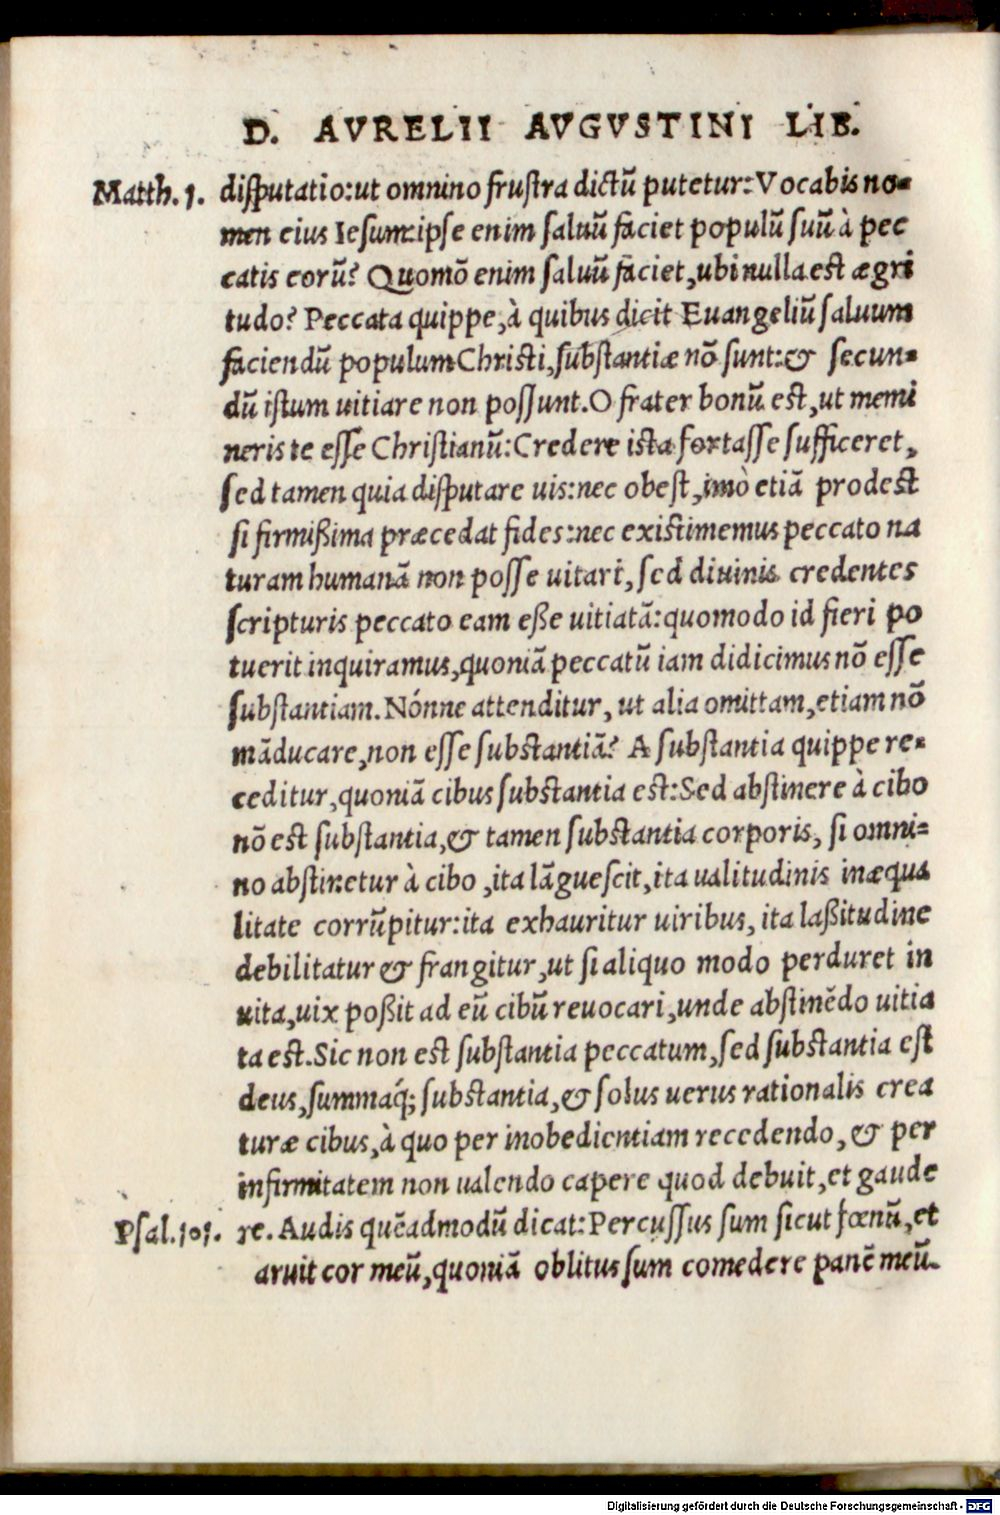 D. AVRELII AVGVSTINI LIB.
Matth. 1. disputatio: ut omnino frustra dictū putetur: Vocabis no=
men eius Iesum: ipse enim saluū faciet populū suū à pec
catis eorū? Quomō enim saluū faciet, ubi nulla est ægri
tudo? Peccata quippe, à quibus dicit Euangeliū saluum
faciendū populum Christi, substantiæ nō sunt: & secun=
dū istum uitiare non possunt. O frater bonū est, ut memi
neris te esse Christianū: Credere ista fortasse sufficeret,
sed tamen quia disputare uis: nec obest, imò etiā prodest
si firmißima præcedat fides: nec existimemus peccato na
turam humanā non posse uitari, sed diuinis credentes
scripturis peccato eam eße uitiatā: quomodo id fieri po
tuerit inquiramus, quoniā peccatū iam didicimus nō esse
substantiam. Nónne attenditur, ut alia omittam, etiam nō
māducare, non esse substantiā? A substantia quippe re=
ceditur, quoniā cibus substantia est: Sed abstinere à cibo
nō est substantia, & tamen substantia corporis, si omni=
no abstinetur à cibo, ita lāguescit, ita ualitudinis inæqua
litate corrūpitur: ita exhauritur uiribus, ita laßitudine
debilitatur & frangitur, ut si aliquo modo perduret in
uita, uix poßit ad eū cibū reuocari, unde abstinēdo uitia
ta est. Sic non est substantia peccatum, sed substantia est
deus, summaq́; substantia, & solus uerus rationalis crea
turæ cibus, à quo per inobedientiam recedendo, & per
infirmitatem non ualendo capere quod debuit, et gaude
Psal. 101. re. Audis quēadmodū dicat: Percussus sum sicut fœnū, et
aruit cor meū, quoniā oblitus sum comedere panē meū.
Digitalisierung gefördert durch die Deutsche Forschungsgemeinschaft - DFG